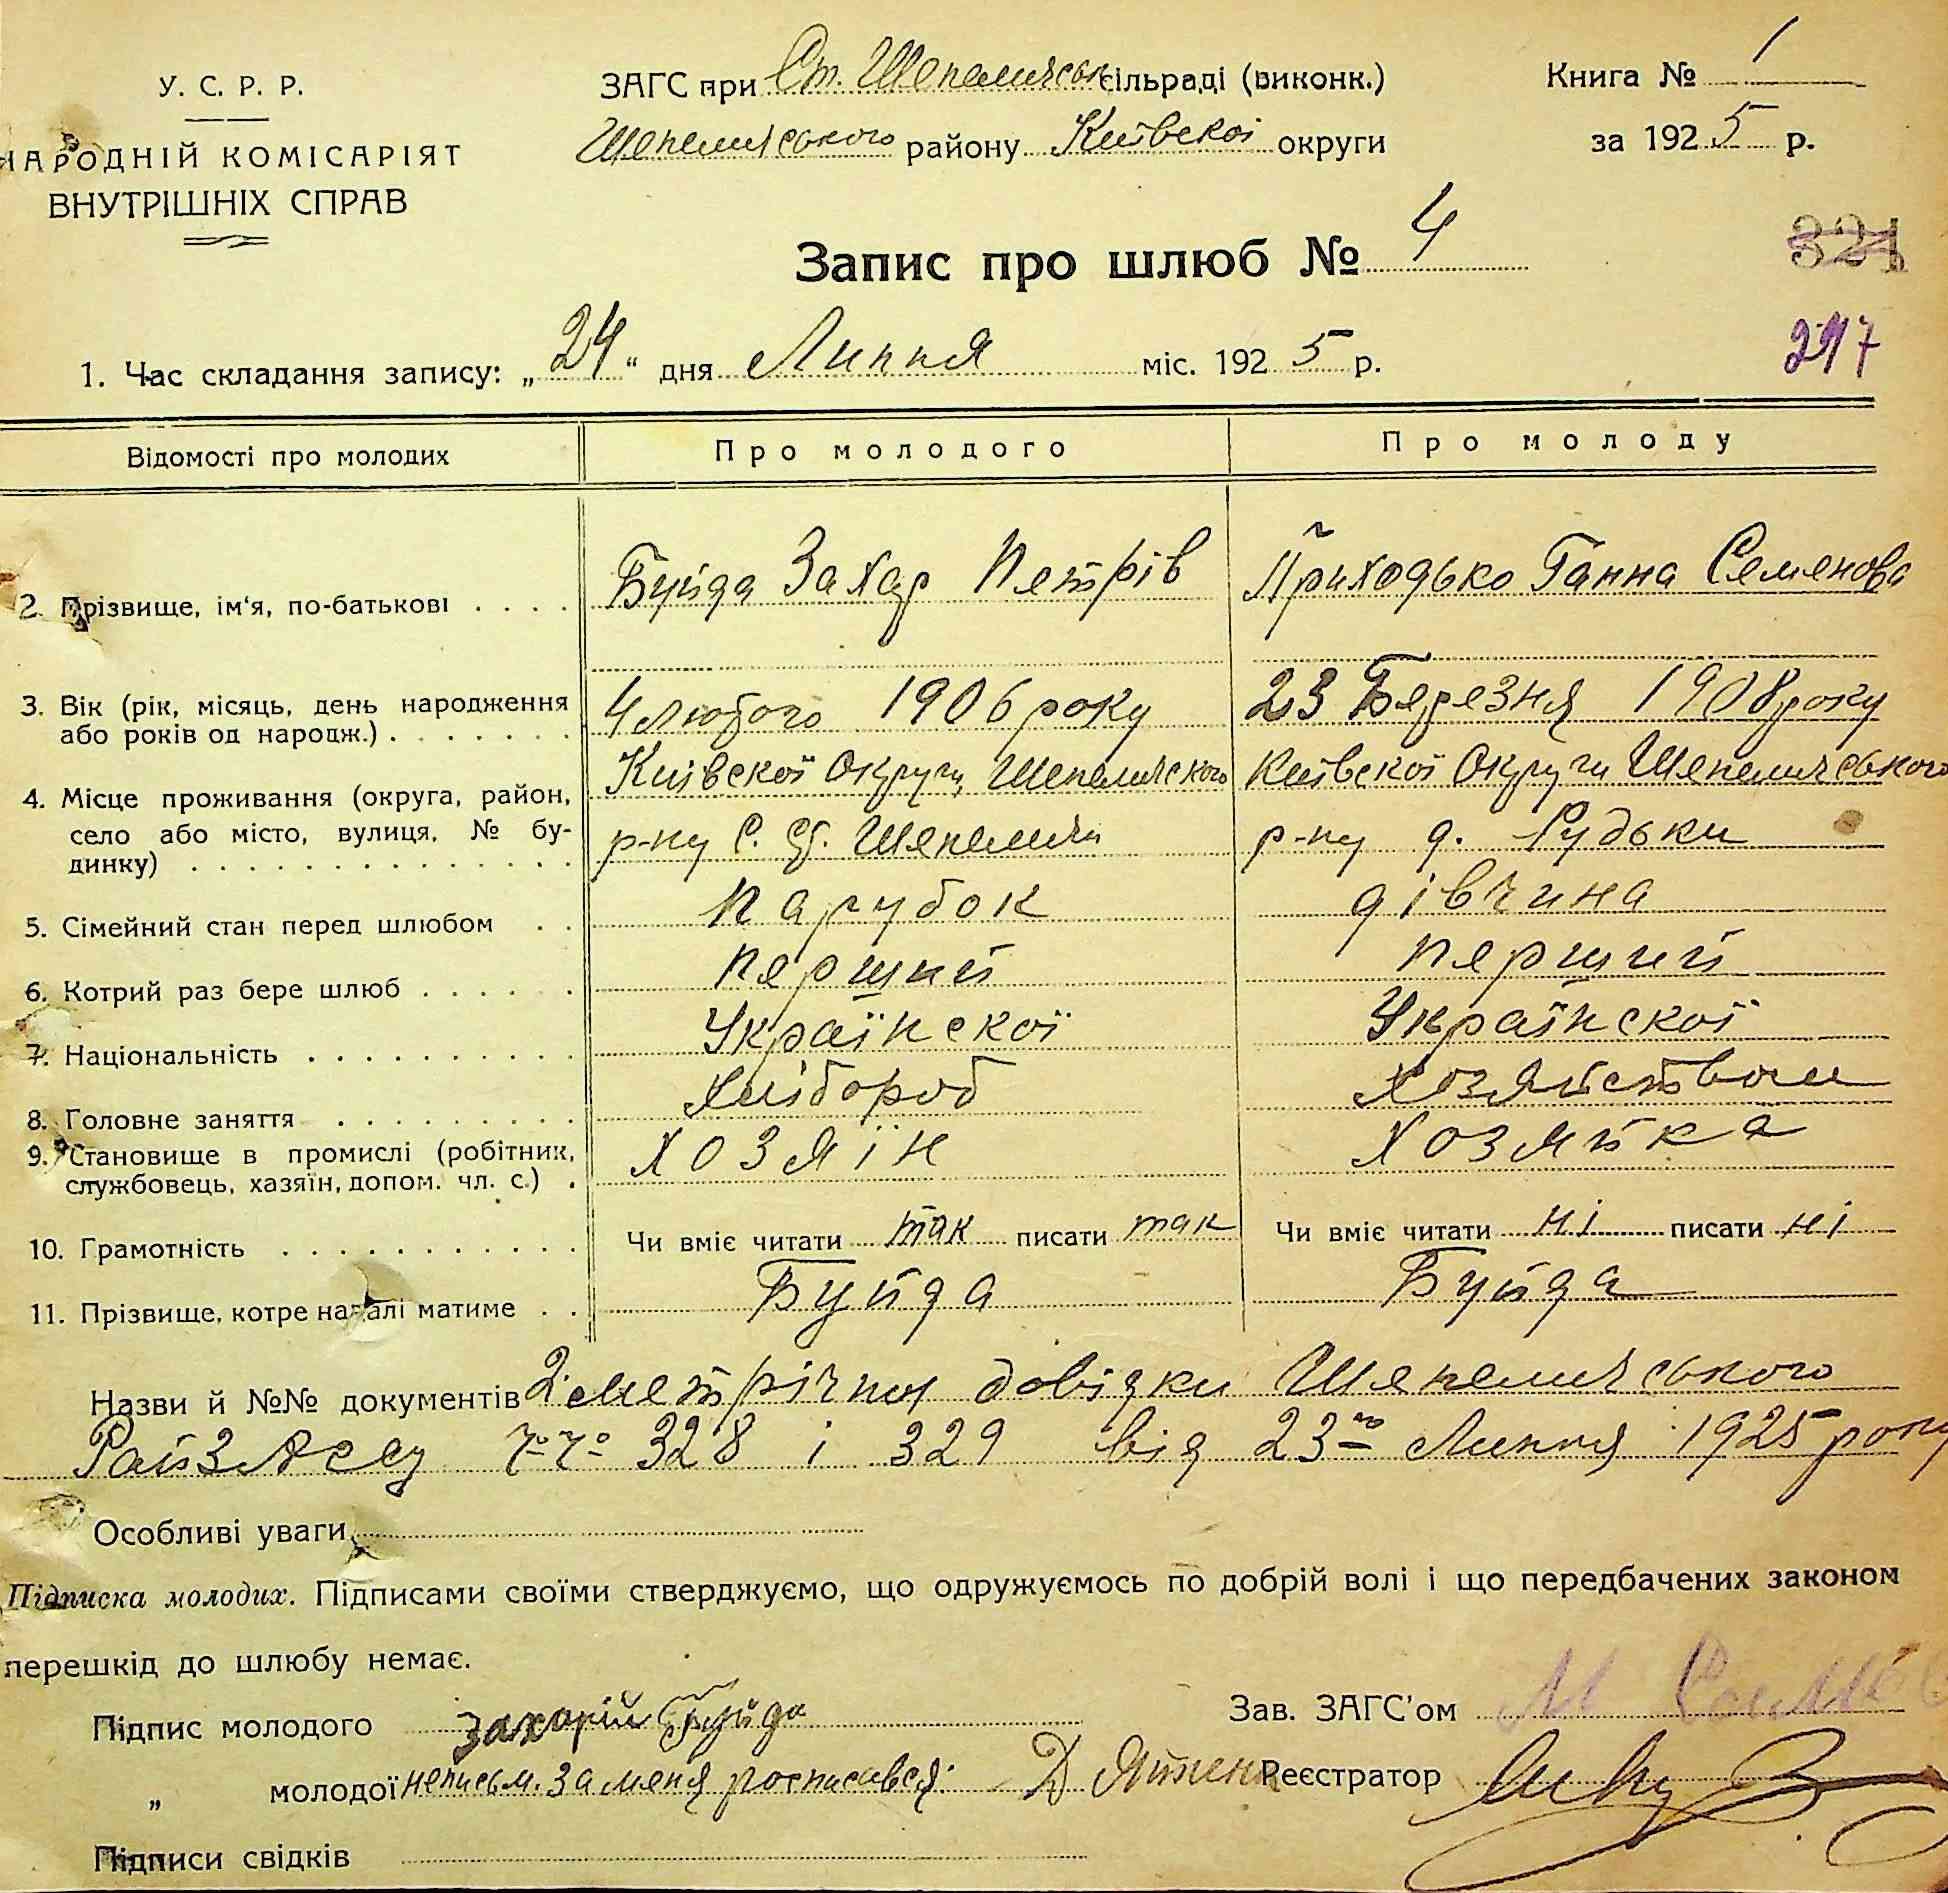 У. С. Р. Р.
НАРОДНІЙ КОМІСАРІЯТ
ВНУТРІШНІХ СПРАВ
ЗАГС при Ст. Шепеличськ сільраді (виконк.)
Шепеличського району Київскої округи
Книга № 1
за 1925 р.
Запис про шлюб № 4
321
297
1. Час складання запису: „24“ дня Липня міс. 1925 р.
Відомості про молодих Про молодого Про молоду
2. Прізвище, ім'я, по-батькові . . . . Буйда Захар Петрів Приходько Ганна Семенова
3. Вік (рік, місяць, день народження 4 лютого 1906 року 23 Березня 1908 року
або років од народж.) . . . . . . .
Київскої Округи, Шепеличского Київскої Округи Шепеличського
4. Місце проживання (округа, район,
село або місто, вулиця, № бу- р-ну С. Ст. Шепеличи р-ну д. Рудьки
динку) . . . . . . . . . . . . . .
5. Сімейний стан перед шлюбом . . Парубок дівчина
6. Котрий раз бере шлюб . . . . . . Перший перший
7. Національність . . . . . . . . . . Українскої Українскої
8. Головне заняття . . . . . . . . . Хлібороб Хозяйством
9. Становище в промислі (робітник, хозяїн хозяйка
службовець, хазяїн, допом. чл. с.) .
10. Грамотність . . . . . . . . . . . Чи вміє читати так писати так Чи вміє читати ні писати ні
11. Прізвище, котре надалі матиме . . Буйда Буйда
Назви й №№ документів 2 метрічни довідки Шепеличського
РайЗАгсу №№ 328 і 329 від 23го Липня 1925 року
Особливі уваги
Підписка молодих. Підписами своїми стверджуємо, що одружуємось по добрій волі і що передбачених законом
перешкід до шлюбу немає.
Підпис молодого захарій Буйда Зав. ЗАГС'ом М
„ молодої неписьм. За меня росписався: Д Реєстратор
Підписи свідків